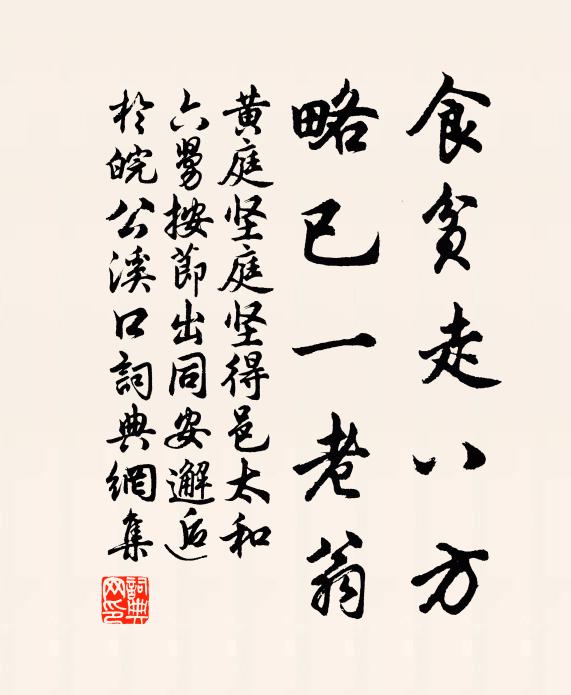 食貧走八方
略已一老翁
黄庭坚庭坚得邑太和
六舅按節出同安邂逅
於皖公溪口詞典網集
詞典
网印